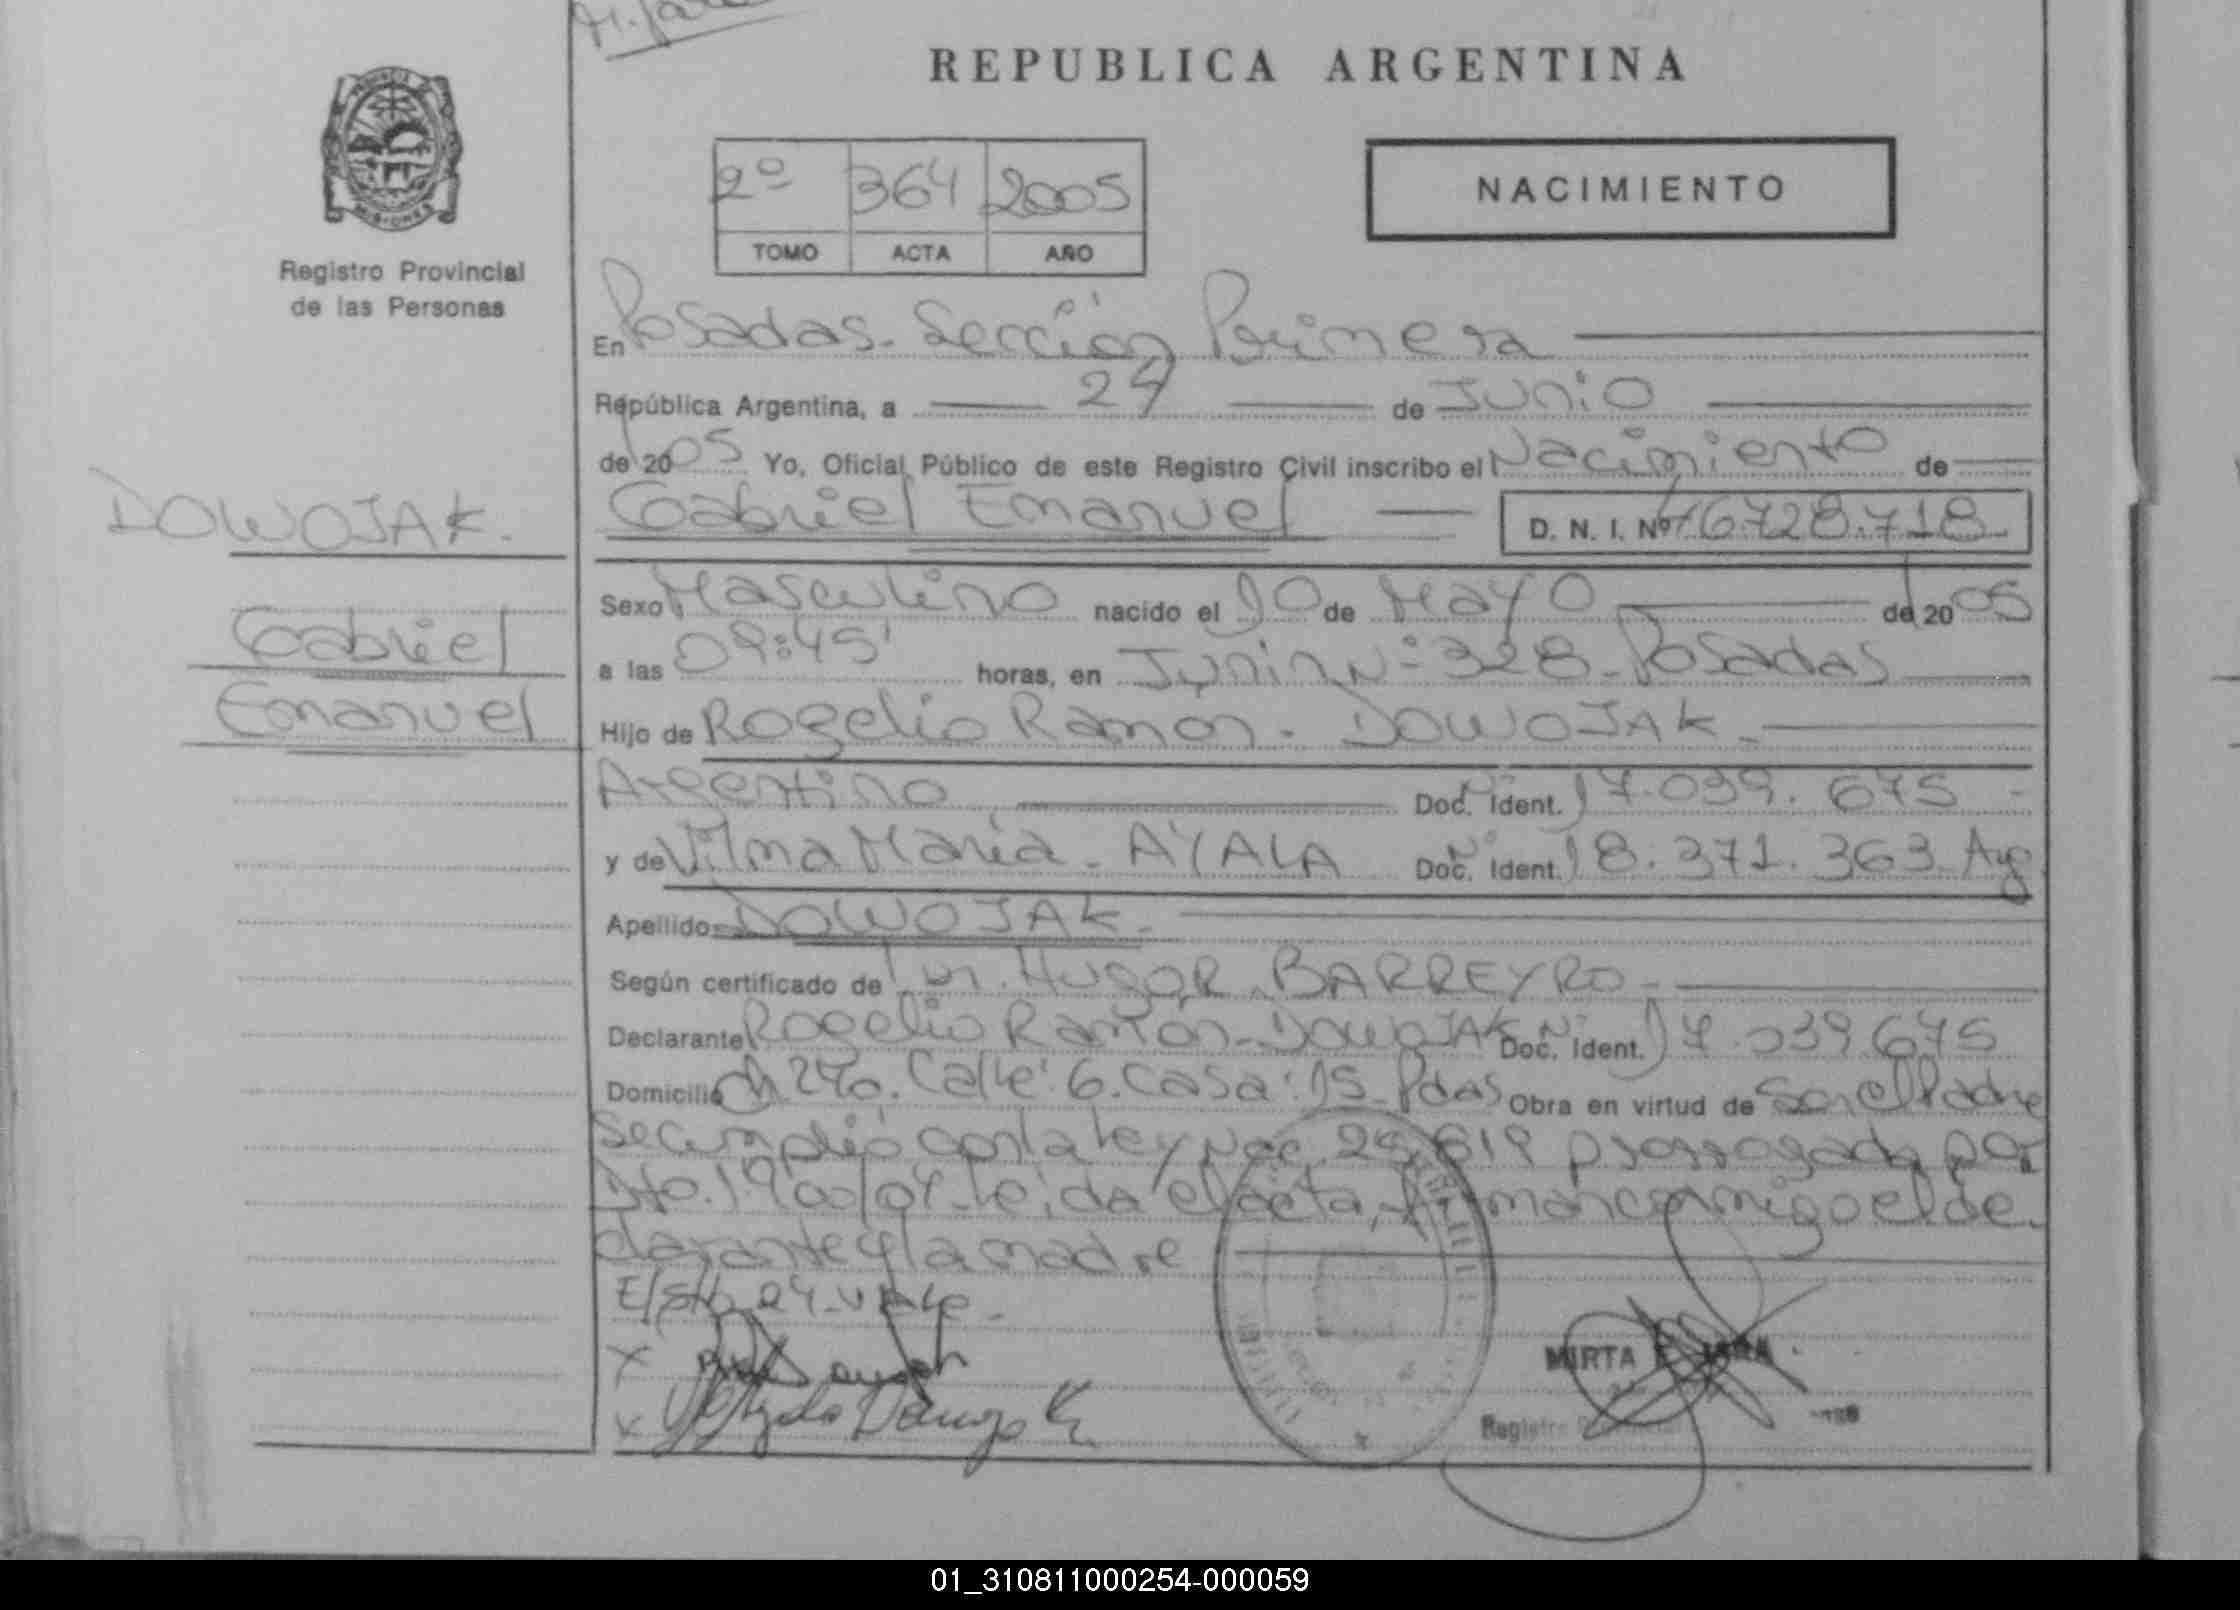 REPUBLICA ARGENTINA
2º 364 2005
TOMO ACTA AÑO
NACIMIENTO
MISIONES
Registro Provincial
de las Personas
En Posadas. Sección Primera
República Argentina, a 24 de Junio
de 2005 Yo, Oficial Público de este Registro Civil inscribo el Nacimiento de
Gabriel Emanuel D. N. I. Nº 46.728.718
DOWOJAK.
Gabriel
Emanuel
Sexo Masculino nacido el 10 de Mayo de 2005
a las 09:45' horas, en Junin Nº 328. Posadas
Hijo de Rogelio Ramon. DOWOJAK.
Argentino Doc. Ident. 17.039.675
y de Vilma Maria. AYALA Doc. Ident. 18.371.363. Arg
Apellido DOWOJAK.
Según certificado de Dr. HUGO R. BARREYRO.
Declarante Rogelio Ramon. DOWOJAK Doc. Ident. 17.039.675
Domicilio Ch. 240. Calle: 6. Casa: 15. Pdas Obra en virtud de Ser el Padre
Se cumplió con la Ley Nac. 25.819 prorrogada por
Dto. 1900/04. Leida el acta, firman conmigo el de
clarante y la madre
E/Sto 24. Vale.
X
X
MIRTA
Registro
01_310811000254-000059